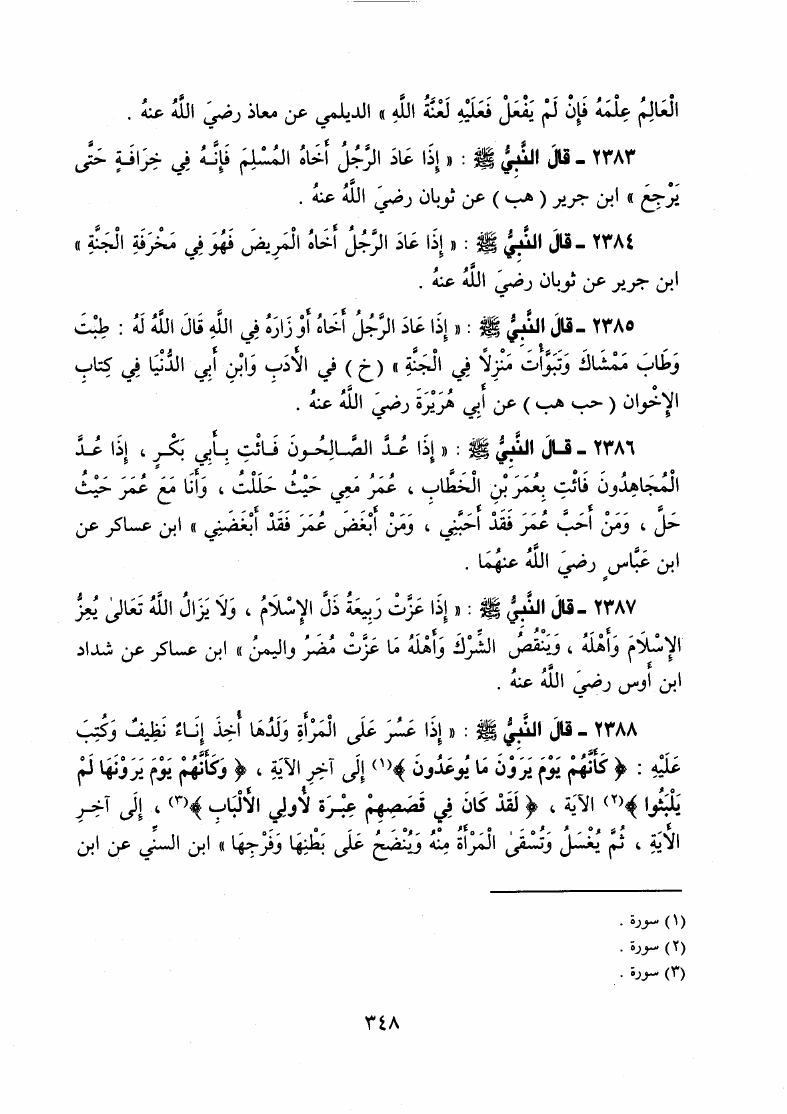 الْعَالِمُ عِلْمَهُ فَإِنْ لَمْ يَفْعَلْ فَعَلَيْهِ لَعْنَةُ اللَّهِ » الديلمي عن معاذ رضيَ اللَّهُ عنهُ .
٢٣٨٣ - قالَ النَّبِيُّ ﷺ : « إِذَا عَادَ الرَّجُلُ أَخَاهُ المُسْلِمَ فَإِنَّهُ فِي خِرَافَةٍ حَتَّى
يَرْجِعَ » ابن جرير ( هب ) عن ثوبان رضيَ اللَّهُ عنهُ .
٢٣٨٤ - قالَ النَّبِيُّ ﷺ : « إِذَا عَادَ الرَّجُلُ أَخَاهُ الْمَرِيضَ فَهُوَ فِي مَخْرَفَةِ الْجَنَّةِ »
ابن جرير عن ثوبان رضيَ اللَّهُ عنهُ .
٢٣٨٥ - قالَ النَّبِيُّ ﷺ : « إِذَا عَادَ الرَّجُلُ أَخَاهُ أَوْ زَارَهُ فِي اللَّهِ قَالَ اللَّهُ لَهُ : طِبْتَ
وَطَابَ مَمْشَاكَ وَتَبَوَّأْتَ مَنْزِلاً فِي الْجَنَّةِ » ( خ ) في الأَدَبِ وَابْنِ أَبي الدُّنْيَا فِي كِتابِ
الإِخْوان ( حب هب ) عن أَبِي هُرَيْرَةَ رضيَ اللَّهُ عنهُ .
٢٣٨٦ - قالَ النَّبِيُّ ﷺ : « إِذَا عُدَّ الصَّالِحُونَ فَائْتِ بِأَبِي بَكْرٍ ، إِذَا عُدَّ
الْمُجَاهِدُونَ فَائْتِ بِعُمَرَ بْنِ الْخَطَّابِ ، عُمَرُ مَعِي حَيْثُ حَلَلْتُ ، وَأَنَا مَعَ عُمَرَ حَيْثُ
حَلَّ ، وَمَنْ أَحَبَّ عُمَرَ فَقَدْ أَحَبَّنِي ، وَمَنْ أَبْغَضَ عُمَرَ فَقَدْ أَبْغَضَنِي » ابن عساكر عن
ابن عَبَّاسٍ رضيَ اللَّهُ عنهُمَا .
٢٣٨٧ - قالَ النَّبِيُّ ﷺ : « إِذَا عَزَّتْ رَبِيعَةُ ذَلَّ الإِسْلَامُ ، وَلَا يَزَالُ اللَّهُ تَعَالَى يُعِزُّ
الإِسْلَامَ وَأَهْلَهُ ، وَيَنْقُصُ الشِّرْكَ وَأَهْلَهُ مَا عَزَّتْ مُضَرُ واليمنُ » ابن عساكر عن شداد
ابن أَوس رضيَ اللَّهُ عنهُ .
٢٣٨٨ - قالَ النَّبِيُّ ﷺ : « إِذَا عَسُرَ عَلَى الْمَرْأَةِ وَلَدُهَا أُخِذَ إِنَاءٌ نَظِيفٌ وَكُتِبَ
عَلَيْهِ : ﴿ كَأَنَّهُمْ يَوْمَ يَرَوْنَ مَا يُوعَدُونَ ﴾(١) إِلَى آخِرِ الآيَةِ ، ﴿ وَكَأَنَّهُمْ يَوْمَ يَرَوْنَهَا لَمْ
يَلْبَثُوا ﴾(٢) الآيَةَ ، ﴿ لَقَدْ كَانَ فِي قَصَصِهِمْ عِبْرَة لأُولِي الأَلْبَابِ ﴾(٣) ، إِلَى آخِرِ
الآيَةِ ، ثُمَّ يُغْسَلُ وَتُسْقَى الْمَرْأَةُ مِنْهُ وَيُنْضَحُ عَلَى بَطْنِهَا وَفَرْجِهَا » ابن السنِّي عن ابن
(١) سورة .
(٢) سورة .
(٣) سورة .
٣٤٨